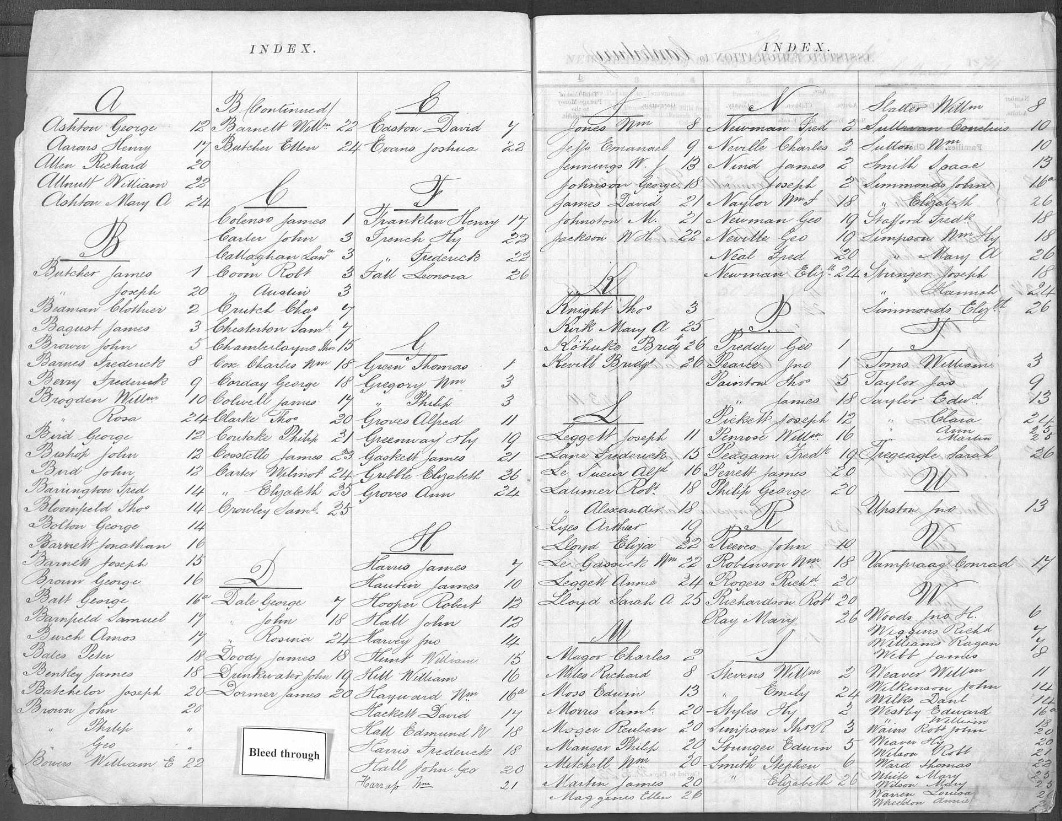 INDEX.
A
Ashton George 12
Aarons Henry 17
Allen Richard 20
Allnutt William 22
Ashton Mary A 24
B
Butcher James 1
" Joseph 20
Beaman Clothier 2
Bagust James 3
Brown John 5
Barnes Frederick 8
Berry Frederick 9
Brogden Willm 10
" Rosa 24
Bird George 12
Bishop John 12
Bird John 12
Barrington Fred 14
Bloomfield Thos 14
Bolton George 14
Barnett Jonathan 16
Barnett Joseph 15
Brown George 16
Batt George 16a
Barnfield Samuel 17
Burch Amos 17
Bates Peter 18
Bentley James 18
Batchelor Joseph 20
Brown John 20
" Philip "
" Geo "
Bowers William E 22
B (Continued)
Barnett Willm 22
Butcher Ellen 24
C
Colenso James 1
Carter John 3
Callaghan 3
Coom Robt 3
" Austin 3
Crutch Chas 7
Chesterton Saml 7
Chamberlayne Wm 15
Cox Charles Wm 18
Corday George 18
Colwell James 17
Clarke Thos 20
Coutake Philip 21
Costello James 23
Carter Wilmot 24
" Elizabeth 25
Crowley Saml 25
D
Dale George 7
" John 18
" Rosina 24
Doody James 18
Drinkwater John 19
Dormer James 20
Bleed through
E
Easton David 7
Evans Joshua 22
F
Franklin Henry 17
French Hy 22
" Frederick 22
Fall Leonora 26
G
Green Thomas 1
Gregory Wm 3
" Philip 3
Groves Alfred 11
Greenway Hy 19
Gaskett James 21
Gribble Elizabeth 26
Groves Ann 24
H
Harris James 7
Hauten James 10
Hooper Robert 12
Hall John 12
Harvey Jno 14
Hunt William 15
Hill William 16
Hayward Wm 16a
Hackett David 17
Hall Edmund W 18
Harris Frederick 18
Hall John Geo 20
Harrap Wm 21
INDEX.
J
Jones Wm 8
Jeffs Emanuel 9
Jennings W. J. 13
Johnson George 18
James David 21
Johnston M. 21
Jackson W H. 22
K
Knight Thos 3
Kirk Mary A 25
Kohuko Bridgt 26
Kevill Bridgt 26
L
Leggett Joseph 11
Lane Frederick 15
Le Tueur Alfd 16
Latimer Robt 18
" Alexander 18
Lyes Arthur 19
Lloyd Eliza 22
Le Gassick Wm 22
Leggett Annie 24
Lloyd Sarah A 25
M
Magor Charles 2
Miles Richard 8
Moss Edwin 13
Morris Saml 20
Moger Reuben 20
Manger Philp 20
Mitchell Wm 20
Martin James 20
Magginis Ellen 26
N
Newman Fred 2
Neville Charles 2
Nind James 2
" Joseph 2
Naylor Wm F 18
Newman Geo 19
Neville Geo 19
Neal Fred 20
Newman Elizth 24
P
Preddy Geo 1
Pearce Jno 1
Painton Thos 5
" James 18
Pickett Joseph 12
Penrose Willm 16
Pedgam Fredk 19
Perrett James 20
Philip George 20
R
Reeves John 10
Robinson Wm 18
Rogers Richd 20
Richardson Robt 20
Ray Mary 26
S
Stevens Willm 2
" Emily 24
Styles Hy 2
Simpson Thos R 3
Stunger Edwin 5
Smith Stephen 6
" Elizabeth 26
Slatter Willm 8
Sullivan Cornelius 10
Sutton Wm 10
Smith Isaac 13
Simmonds John 16a
" Elizabth 26
Stafford Fredk 18
Simpson Wm Hy 18
" Mary A 26
Stringer Joseph 18
" Hannah 24
Simmonds Elizth 26
T
Toms William 3
Taylor Jas 9
Taylor Edwd 13
" Clara 24
" Ann 25
" Martin 25
Tregeagle Sarah 26
U
Upston Jno 13
V
Vampraag Conrad 17
W
Woods Jno H. 6
Wiggins Richd 7
Williams Ragan 7
Webb James 18
Weaver Willm 11
Wilkinson John 14
Wilks Danl 14
Westby Edward 16a
" William 18
Wains Robt John 20
Weaver Hy 20
Wilson Robt 21
Ward Thomas 23
White Mary 25
Wilson Mary 25
Warren Louisa
Wheeldon Annie